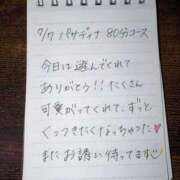 7/7 パサディナ 80分コース
今日は遊んでくれて
ありがとう!! たくさん
可愛がってくれて、ずっと
くっつきたくなっちゃった♥
またお誘い待ってます☺